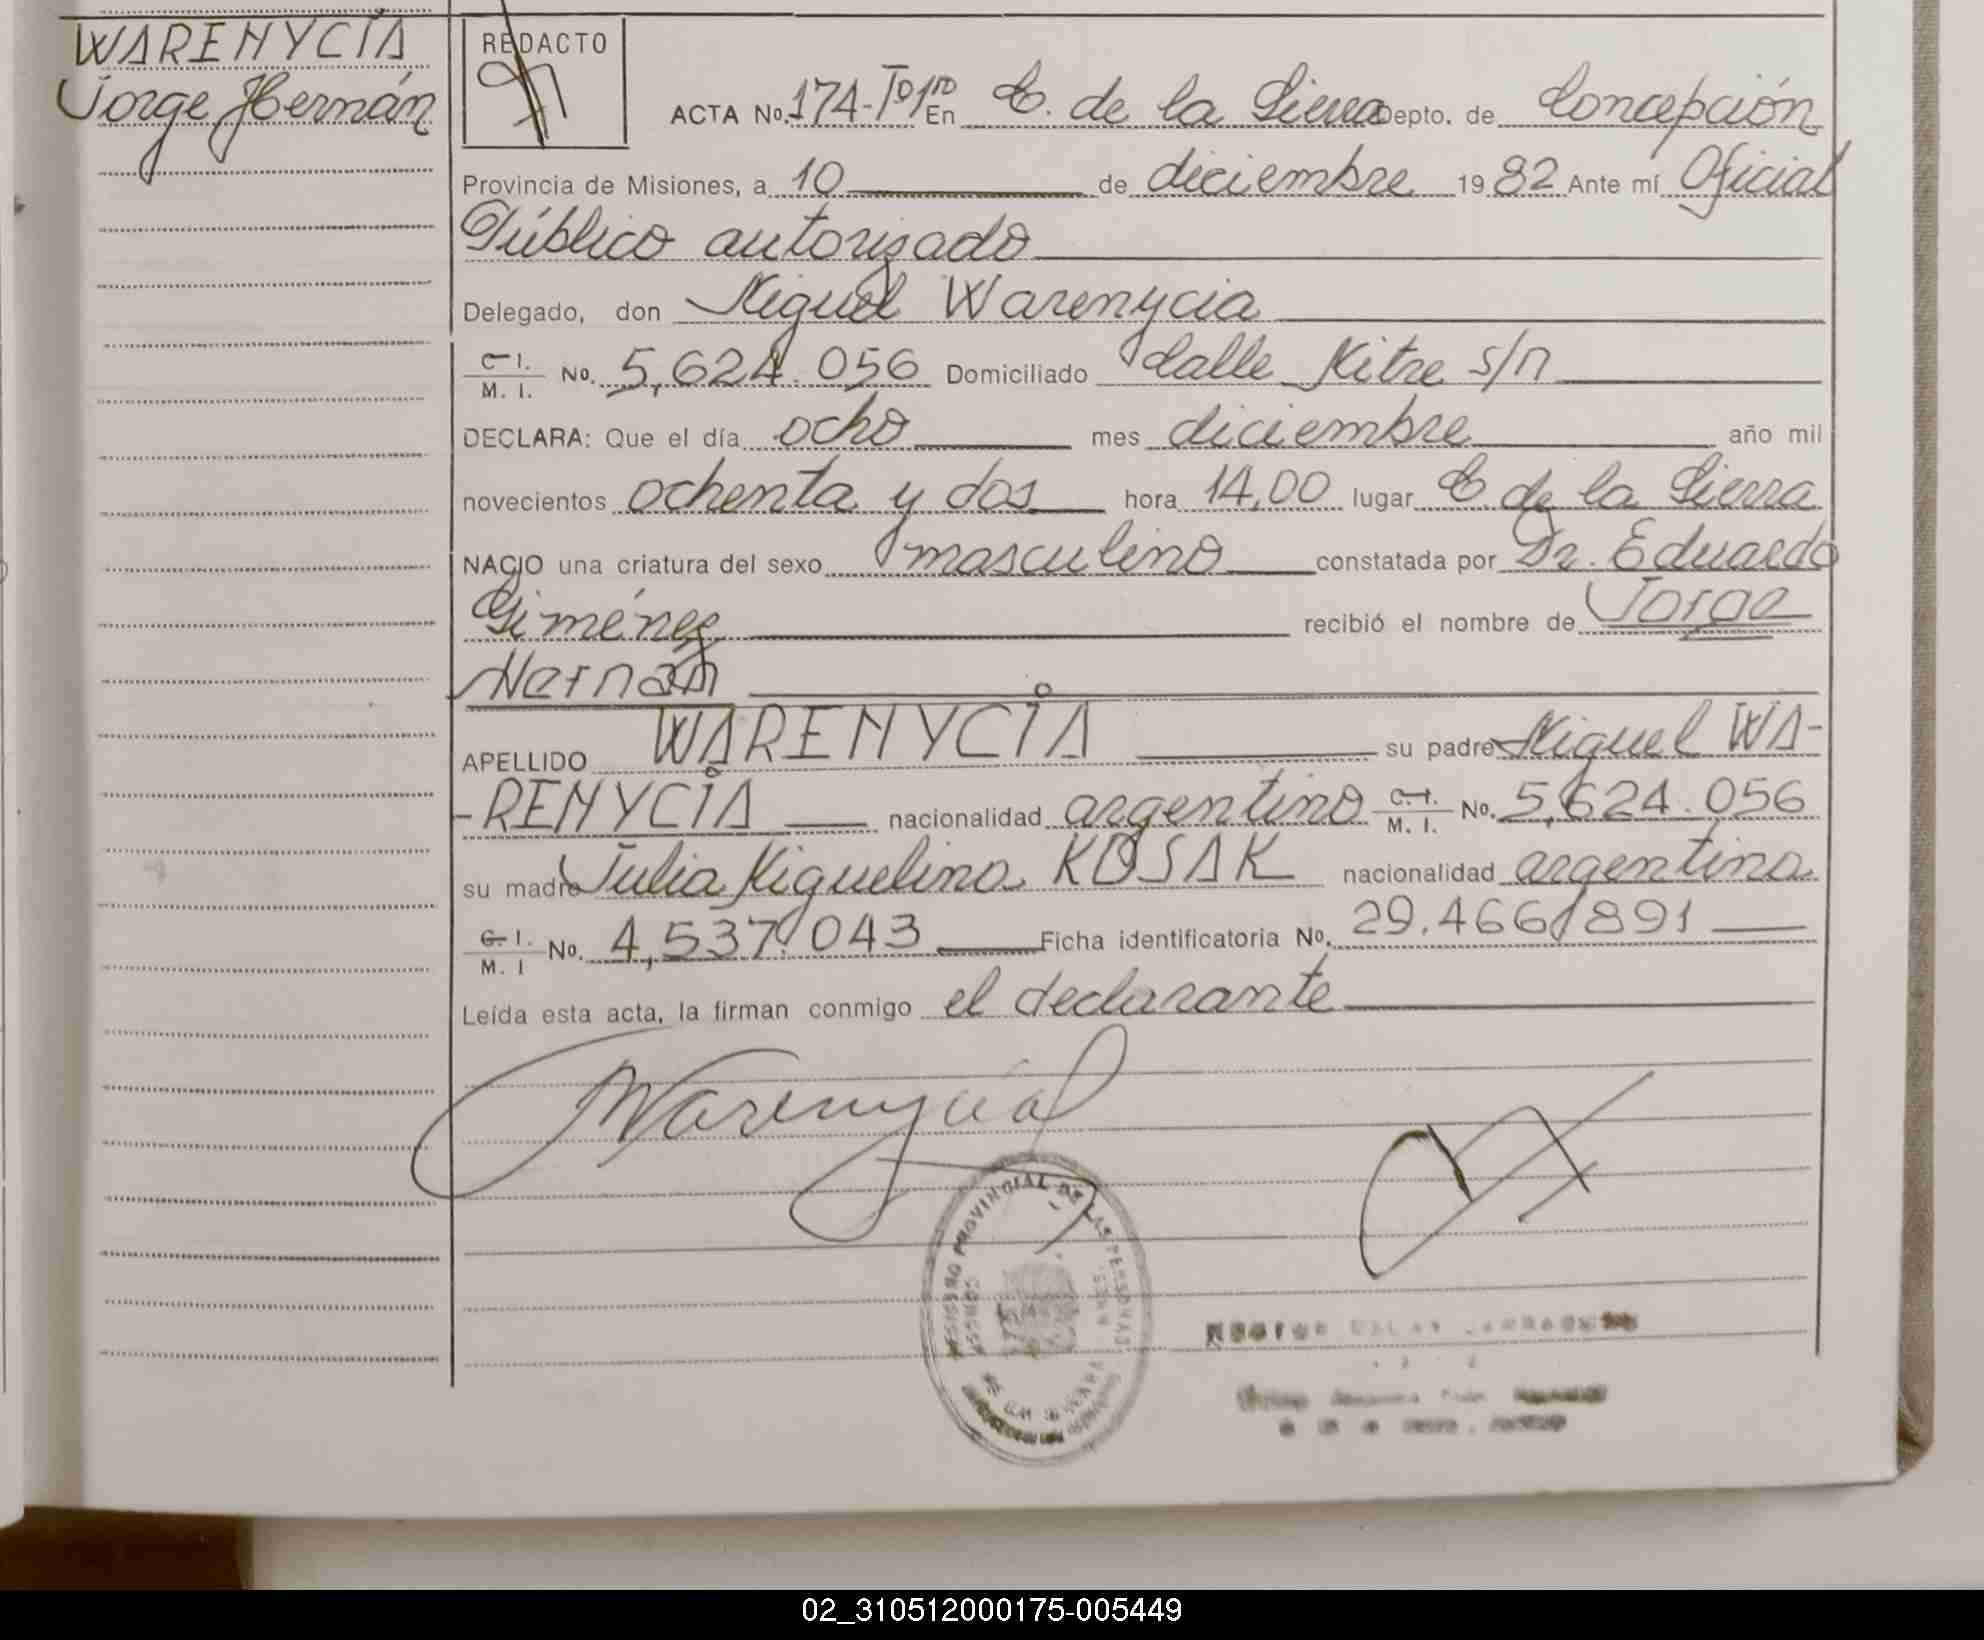 WARENYCIA
Jorge Hernán
REDACTO
ACTA No. 174-Tº1ro En C. de la Sierra Depto. de Concepción
Provincia de Misiones, a 10 de diciembre 1982 Ante mí Oficial
Público autorizado
Delegado, don Miguel Warenycia
C. I. / M. I. No. 5,624.056 Domiciliado Calle Mitre s/n
DECLARA: Que el día ocho mes diciembre año mil
novecientos ochenta y dos hora 14,00 lugar C. de la Sierra
NACIO una criatura del sexo masculino constatada por Dr. Eduardo
Giménez recibió el nombre de Jorge
Hernán
APELLIDO WARENYCIA su padre Miguel WA-
-RENYCIA nacionalidad argentino C. I. / M. I. No. 5,624.056
su madre Julia Miguelina KOSAK nacionalidad argentina
C. I. / M. I No. 4,537.043 Ficha identificatoria No. 29.466.891
Leída esta acta, la firman conmigo el declarante
Warenycia
PROVINCIAL DE LAS PERSONAS
02_310512000175-005449